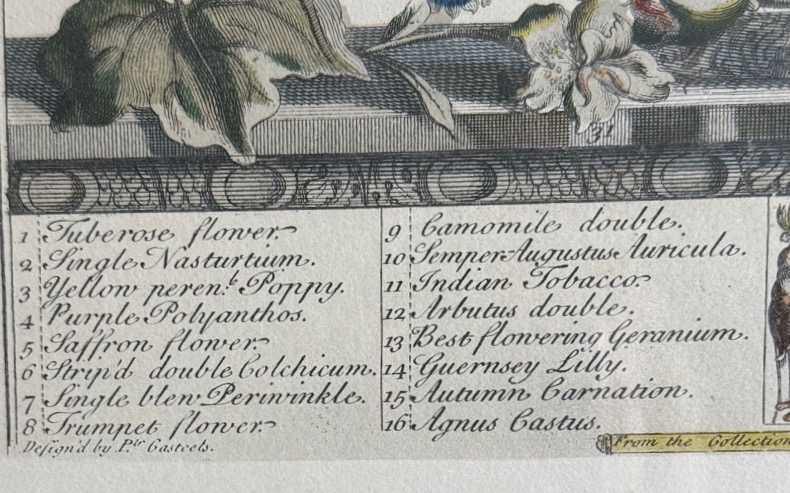 31
1 Tuberose flower.
2 Single Nasturtium.
3 Yellow peren.ˡ Poppy.
4 Purple Polyanthos.
5 Saffron flower.
6 Strip'd double Colchicum.
7 Single blew Periwinkle.
8 Trumpet flower.
Design'd by P.ᵗᵉʳ Casteels.
9 Camomile double.
10 Semper Augustus Auricula.
11 Indian Tobacco.
12 Arbutus double.
13 Best flowering Geranium.
14 Guernsey Lilly.
15 Autumn Carnation.
16 Agnus Castus.
From the Collection